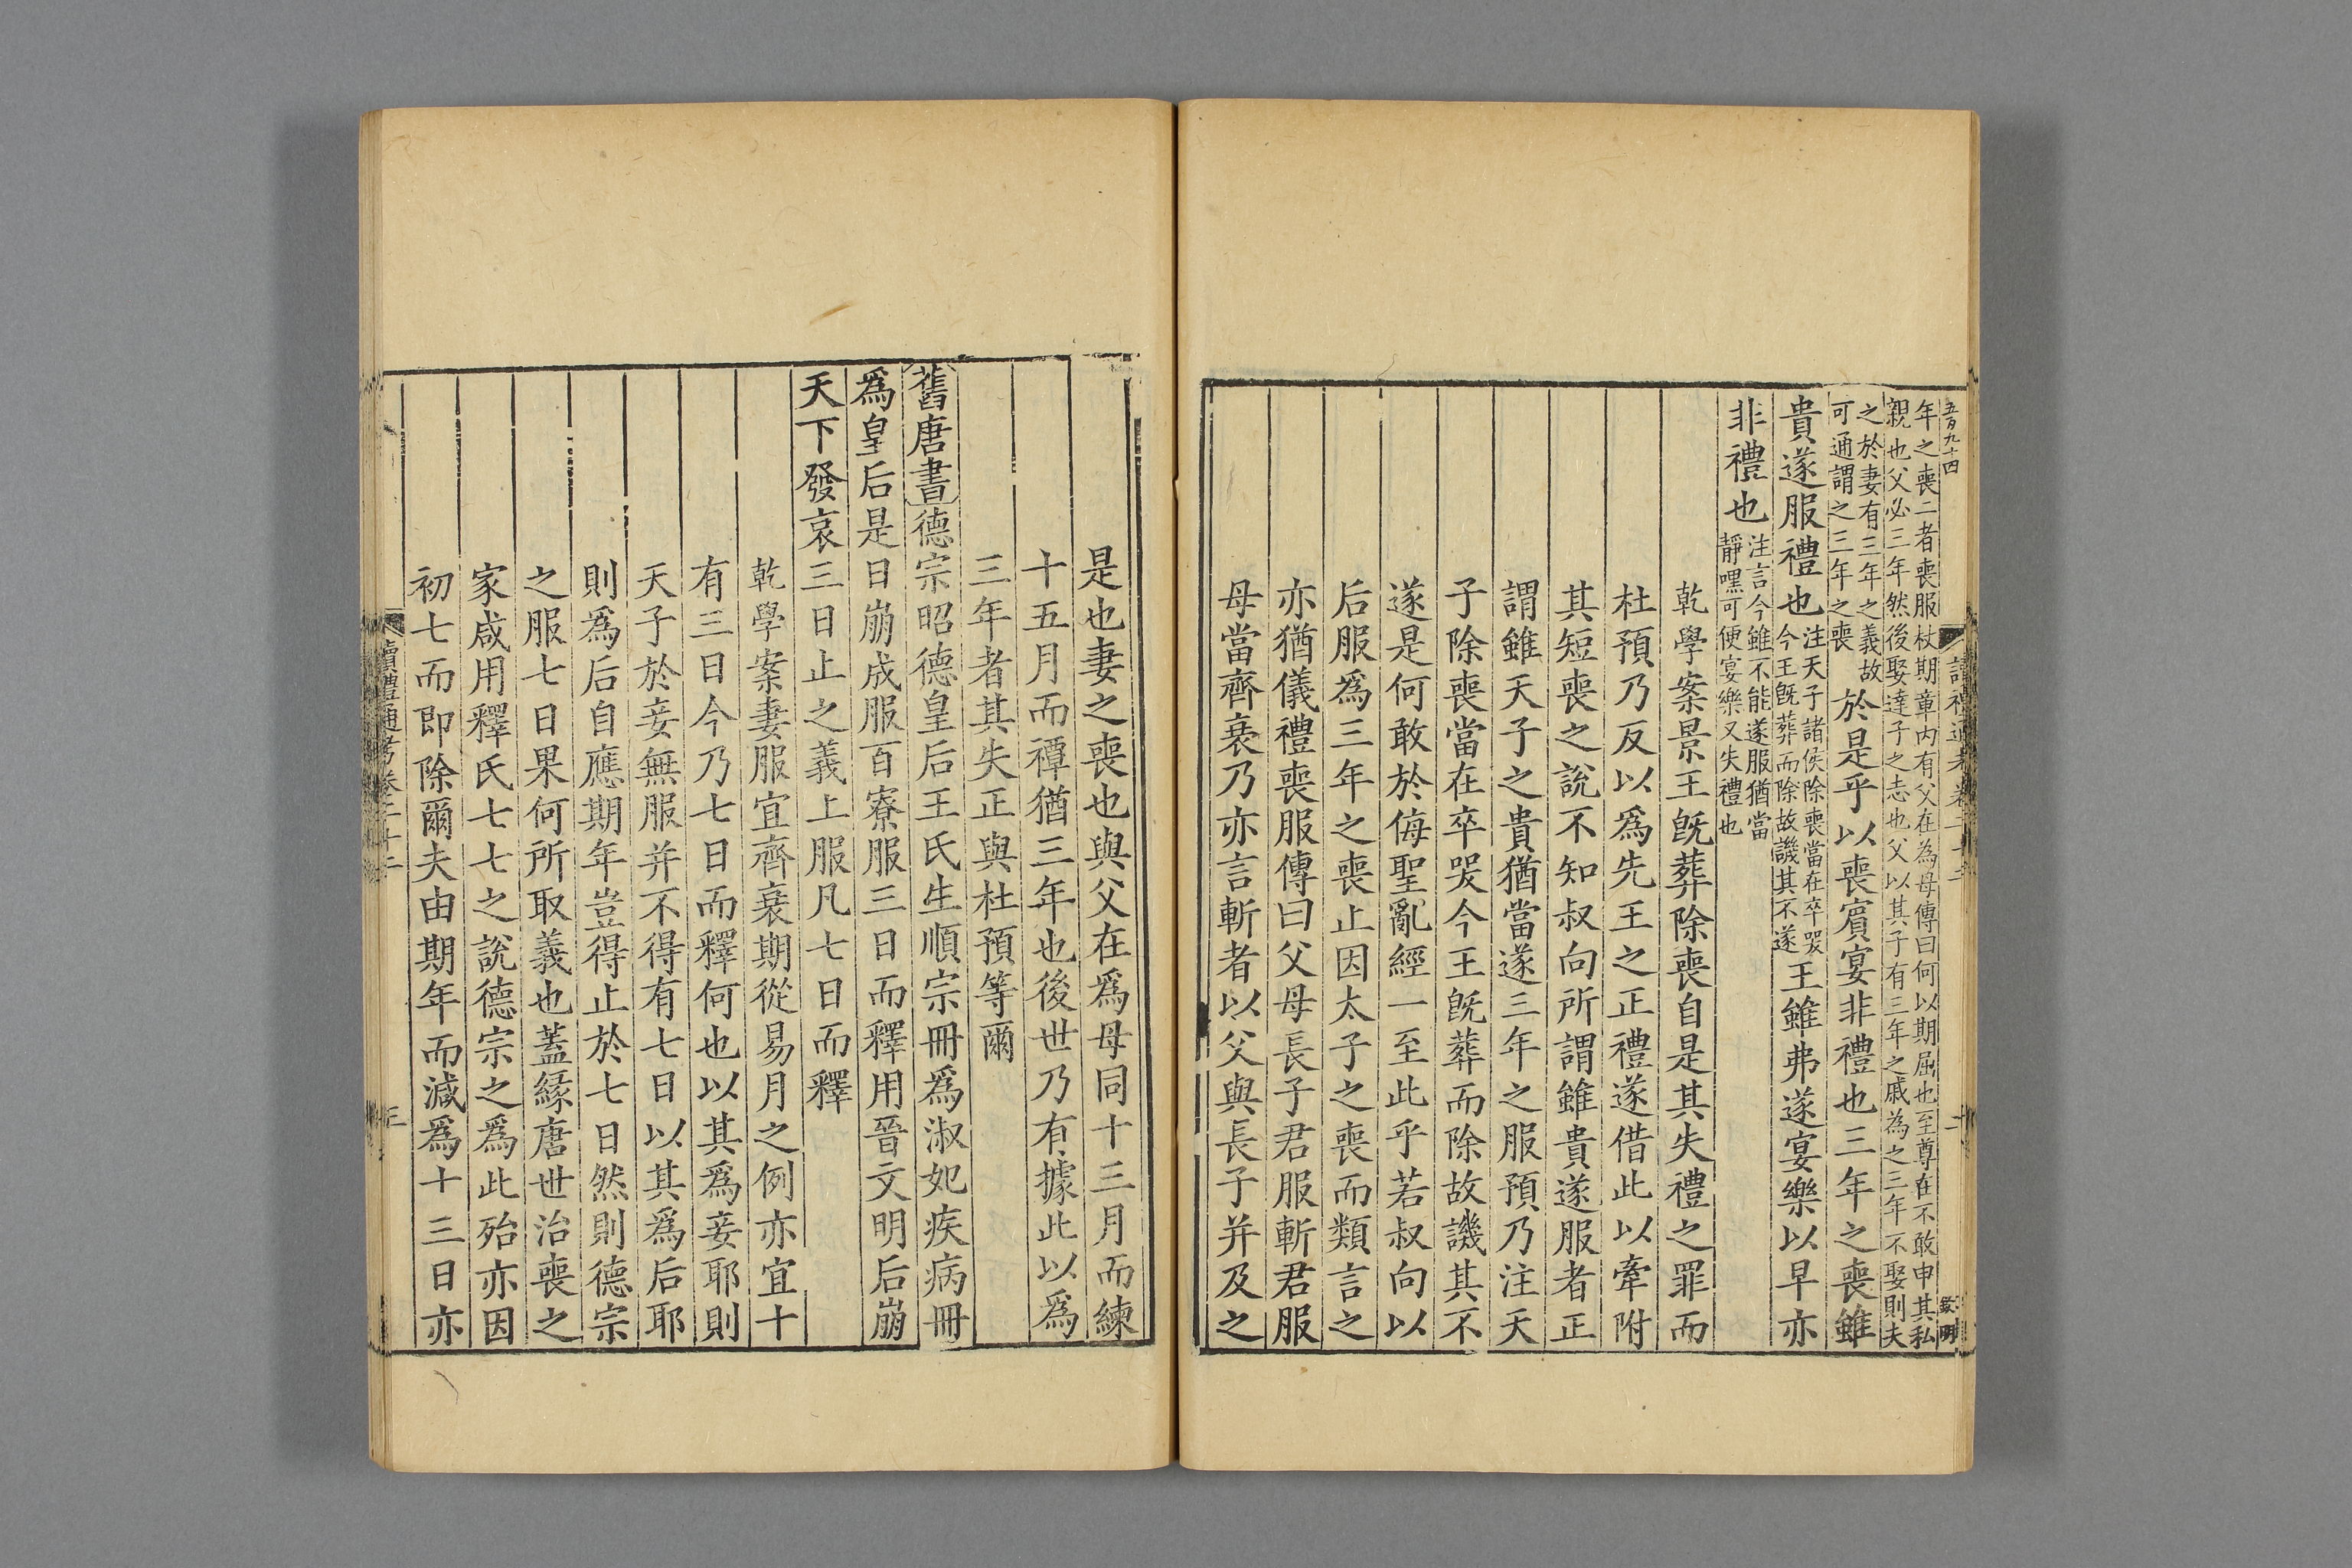 五百九十四
年之喪二者喪服杖期章內有父在為母傳曰何以期屈也至尊在不敢申其私
親也父必三年然後娶達子之志也父以其子有三年之戚為之三年不娶則夫
之於妻有三年之義故
可通謂之三年之喪
於是乎以喪賓宴非禮也三年之喪雖
貴遂服禮也
注天子諸侯除喪當在卒哭
今王既葬而除故譏其不遂
王雖弗遂宴樂以早亦
非禮也
注言今雖不能遂服猶當
靜嘿可便宴樂又失禮也
乾學案景王既葬除喪自是其失禮之罪而
杜預乃反以爲先王之正禮遂借此以牽附
其短喪之說不知叔向所謂雖貴遂服者正
謂雖天子之貴猶當遂三年之服預乃注天
子除喪當在卒哭今王既葬而除故譏其不
遂是何敢於侮聖亂經一至此乎若叔向以
后服爲三年之喪止因太子之喪而類言之
亦猶儀禮喪服傳曰父母長子君服斬君服
母當齊衰乃亦言斬者以父與長子并及之
是也妻之喪也與父在爲母同十三月而練
十五月而禫猶三年也後世乃有據此以爲
三年者其失正與杜預等爾
舊唐書德宗昭德皇后王氏生順宗冊爲淑妃疾病冊
爲皇后是日崩成服百寮服三日而釋用晉文明后崩
天下發哀三日止之義上服凡七日而釋
乾學案妻服宜齊衰期從易月之例亦宜十
有三日今乃七日而釋何也以其爲妾耶則
天子於妾無服并不得有七日以其爲后耶
則爲后自應期年豈得止於七日然則德宗
之服七日果何所取義也蓋緣唐世治喪之
家咸用釋氏七七之說德宗之爲此殆亦因
初七而即除爾夫由期年而減爲十三日亦
讀禮通考卷二十二
三